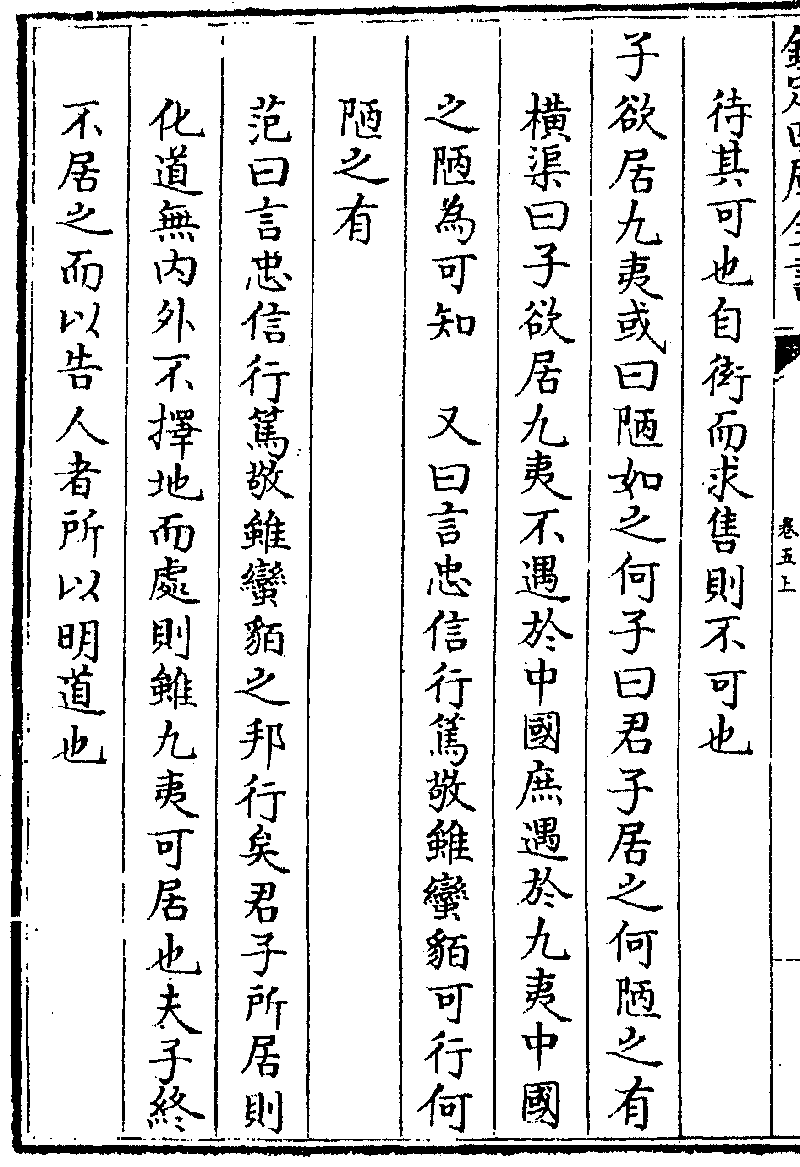 欽定四庫全書
卷五上
待其可也自衒而求售則不可也
子欲居九夷或曰陋如之何子曰君子居之何陋之有
橫渠曰子欲居九夷不遇於中國庶遇於九夷中國
之陋為可知　又曰言忠信行篤敬雖蠻貊可行何
陋之有
范曰言忠信行篤敬雖蠻貊之邦行矣君子所居則
化道無內外不擇地而處則雖九夷可居也夫子終
不居之而以告人者所以明道也